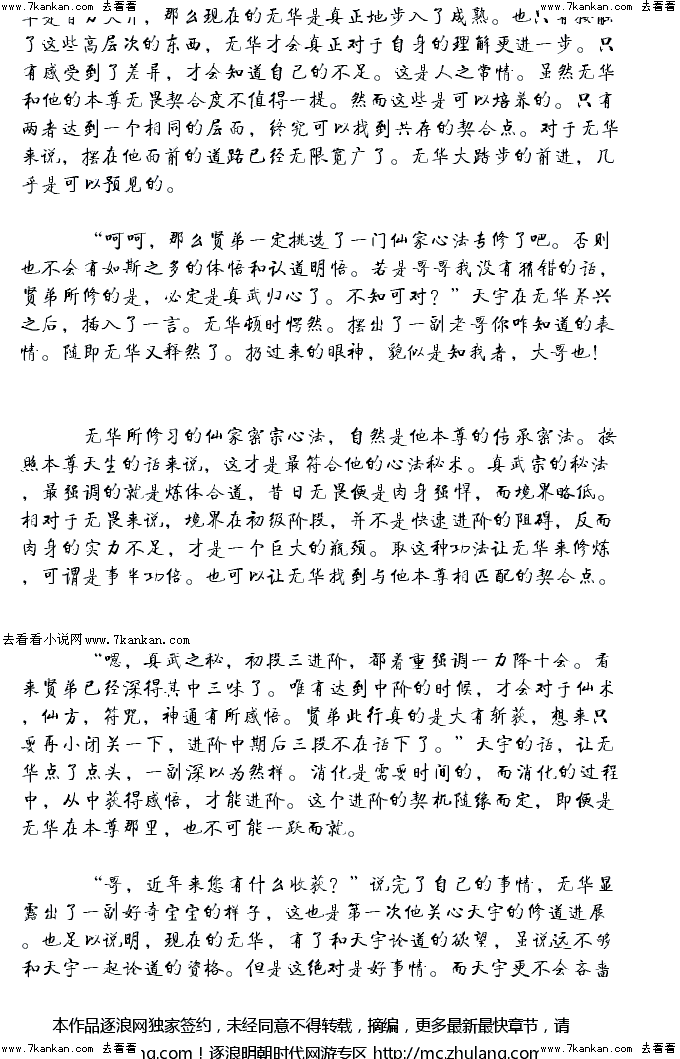 www.7kankan.com 去看看 www.7kankan.com 去看看
了这些高层次的东西，无华才会真正对于自身的理解更进一步。只
有感受到了差异，才会知道自己的不足。这是人之常情。虽然无华
和他的本尊无畏契合度不值得一提。然而这些是可以培养的。只有
两者达到一个相同的层面，终究可以找到共存的契合点。对于无华
来说，摆在他面前的道路已经无限宽广了。无华大踏步的前进，几
乎是可以预见的。
“呵呵，那么贤弟一定挑选了一门仙家心法专修了吧。否则
也不会有如斯之多的体悟和认道明悟。若是哥哥我没有猜错的话，
贤弟所修的是，必定是真武归心了。不知可对？”天宇在无华尽兴
之后，插入了一言。无华顿时愕然。摆出了一副老哥你咋知道的表
情。随即无华又释然了。扔过来的眼神，貌似是知我者，大哥也！
无华所修习的仙家密宗心法，自然是他本尊的传承密法。按
照本尊天生的话来说，这才是最符合他的心法秘术。真武宗的秘法
，最强调的就是炼体合道，昔日无畏便是肉身强悍，而境界略低。
相对于无畏来说，境界在初级阶段，并不是快速进阶的阻碍，反而
肉身的实力不足，才是一个巨大的瓶颈。取这种功法让无华来修炼
，可谓是事半功倍。也可以让无华找到与他本尊相匹配的契合点。
去看看小说网www.7kankan.com
“嗯，真武之秘，初段三进阶，都着重强调一力降十会。看
来贤弟已经深得其中三味了。唯有达到中阶的时候，才会对于仙术
，仙方，符咒，神通有所感悟。贤弟此行真的是大有斩获，想来只
要再小闭关一下，进阶中期后三段不在话下了。”天宇的话，让无
华点了点头，一副深以为然样。消化是需要时间的，而消化的过程
中，从中获得感悟，才能进阶。这个进阶的契机随缘而定，即便是
无华在本尊那里，也不可能一跃而就。
“哥，近年来您有什么收获？”说完了自己的事情，无华显
露出了一副好奇宝宝的样子，这也是第一次他关心天宇的修道进展
。也足以说明，现在的无华，有了和天宇论道的欲望，虽说远不够
和天宇一起论道的资格。但是这绝对是好事情。而天宇更不会吝啬
本作品逐浪网独家签约，未经同意不得转载，摘编，更多最新最快章节，请
www.7kankan.com 去看看 ng.com！逐浪明朝时代网游专区 http://mc.zhulang.com www.7kankan.com 去看看